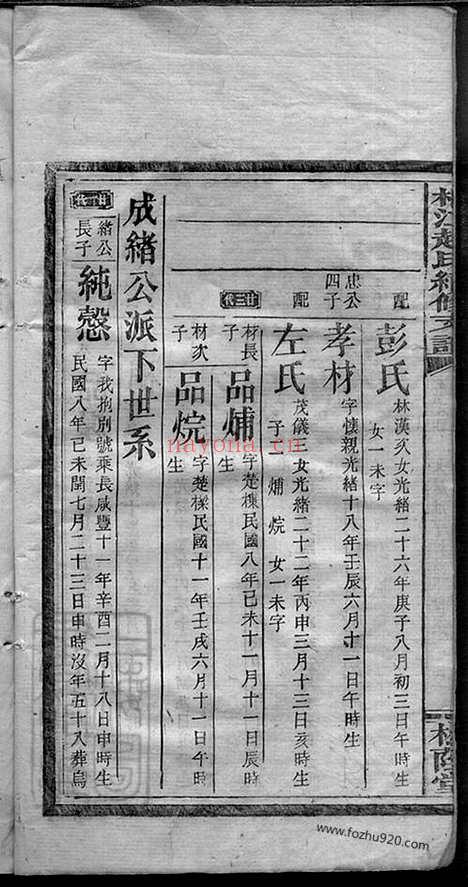 配
彭氏
林漢久女光緒二十六年庚子八月初三日午時生
女一未字
忠公四子
孝材
字懷親光緒十八年壬辰六月十一日午時生
配
左氏
茂儀三女光緒二十二年丙申三月十三日亥時生
子二 煏 烷 女一未字
廿三代
材長子
品煏
字楚楝民國八年己未十一月十一日辰時生
材次子
品烷
字楚樑民國十一年壬戌六月十一日午時生
成緒公派下世系
緒公長子
純慤
字我抱別號乘長咸豐十一年辛酉二月十八日申時生
民國八年己未閏七月二十三日申時沒年五十八葬烏
nayona.cn
www.fozhu920.com